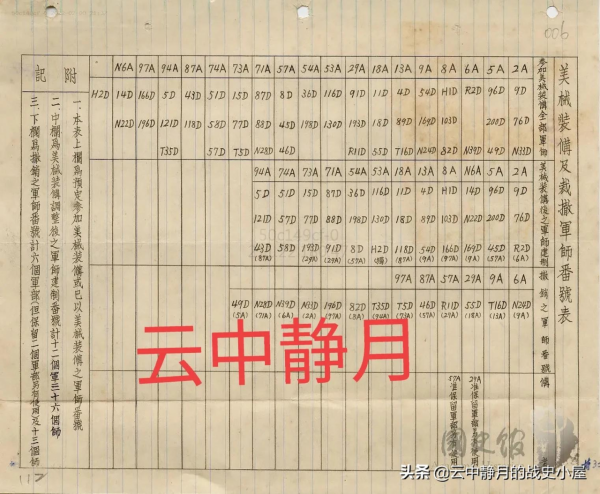 006
美械裝備及裁撤軍師番號表
參加美械裝備全般軍師
N6A 97A 94A 87A 74A 73A 71A 57A 54A 53A 29A 18A 13A 9A 8A 6A 5A 2A
H2D 14D 166D 5D 43D 51D 15D 87D 8D 36D 116D 91D 11D 4D 54D H1D R2D 96D 9D
N22D 196D 121D 118D 58D 77D 88D 45D 198D 130D 193D 18D 89D 169D 103D 200D 76D
T35D 57D T5D N28D 46D R11D 55D T16D N24D 82D N39D 49D N33D
美械裝備後之軍師建制
94A 74A 73A 71A 54A 53A 18A 13A 8A N6A 5A 2A
5D 51D 15D 87D 36D 116D 11D 4D H1D 14D 96D 9D
121D 57D 77D 88D 198D 130D 18D 89D 103D N22D 200D 76D
43D 58D 193D 91D 8D H2D 118D 54D 166D 169D 45D R2D
(87A) (29A) (29A) (57A) (87A) (9A) (97A) (9A) (57A) (6A)
撤銷之軍師番號
97A 87A 57A 29A 9A 6A
49D N28D N39D N33D 196D 82D T35D T5D 46D R11D 55D T16D N24D
(5A) (71A) (6A) (2A) (97A) (8A) (94A) (73A) (57A) (29A) (18A) (13A) (9A)
備
29A准保留軍部另有使用
57A准保留軍部另有使用
附記
一、本表上欄爲預定參加美械裝備或已以美械裝備之軍師番號
二、中欄爲美械裝備調整後之軍師建制番號計十二個軍三十六個師
三、下欄爲撤銷之軍師番號計六個軍部(但保留二個軍部另有使用)及十三個師
云中静月
國史館
头条 @云中静月的战史小屋